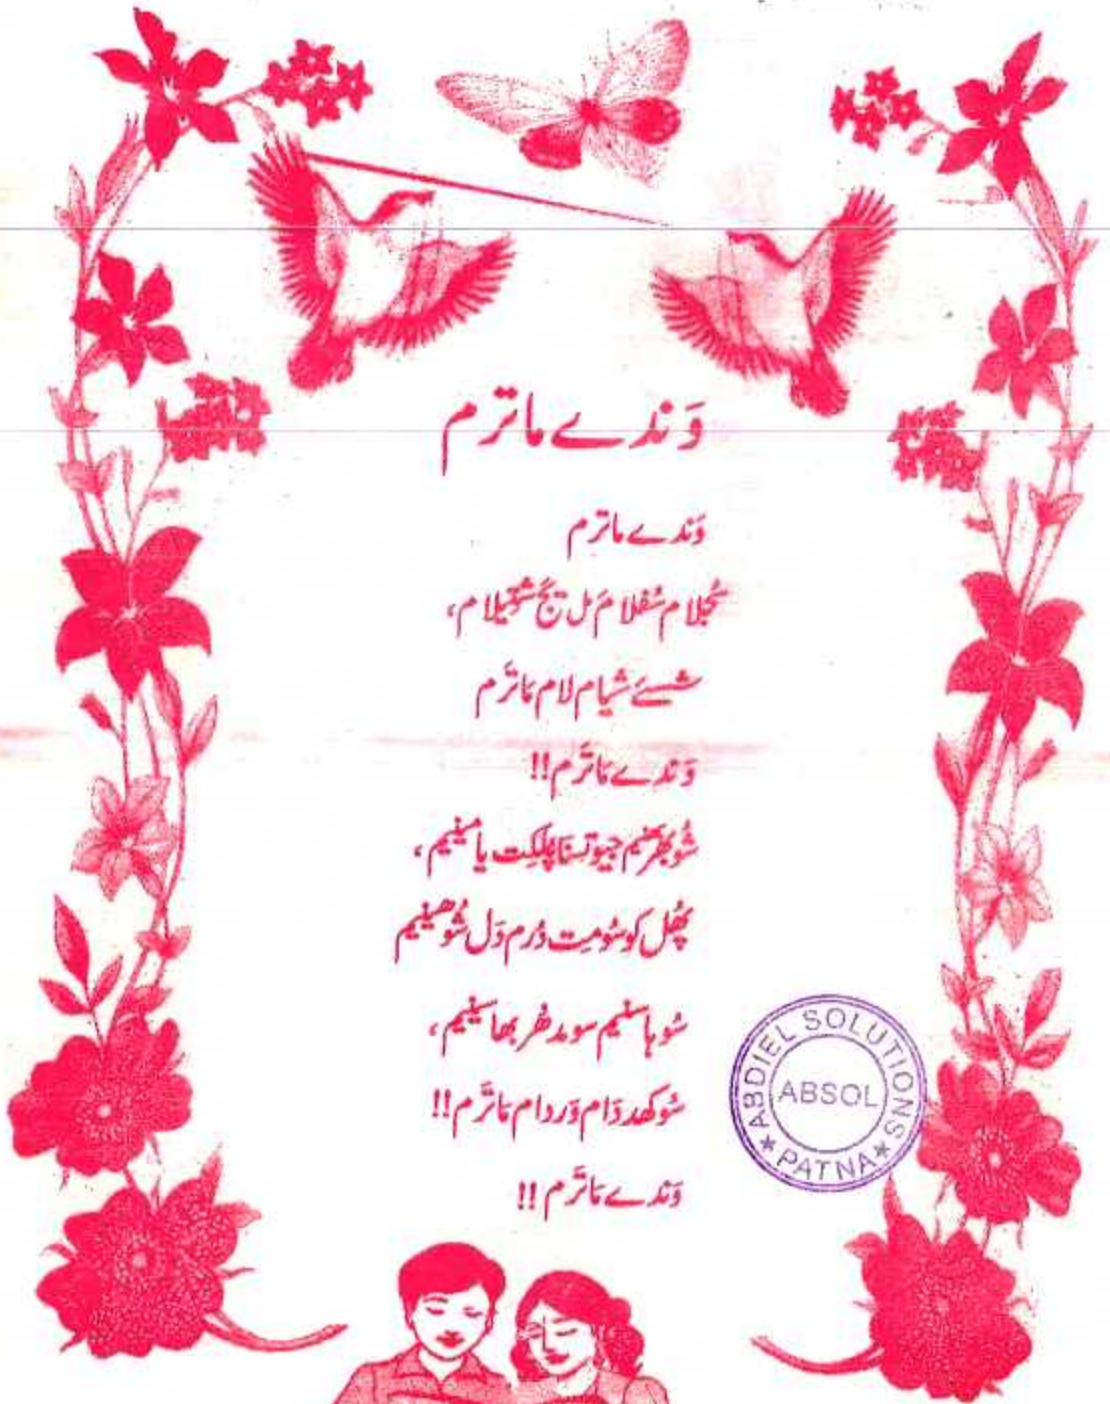 وَندے ماترم
وَندے ماترم
سُجلام سُفلام مَل یَج شیتَیلام،
شسئے شیام لام مَاترَم
وَندے مَاترَم!!
شُوبھر جیوتسنا پُلکِت یامینیم،
پھُل کوسُومِت دُرم دَل شُوھینیم
سُوہاسنیم سومدھُر بھاسینیم،
سُوکھددَام وَردام مَاترَم!!
وَندے مَاترَم!!
ABDIEL SOLUTIONS
ABSOL
PATNA